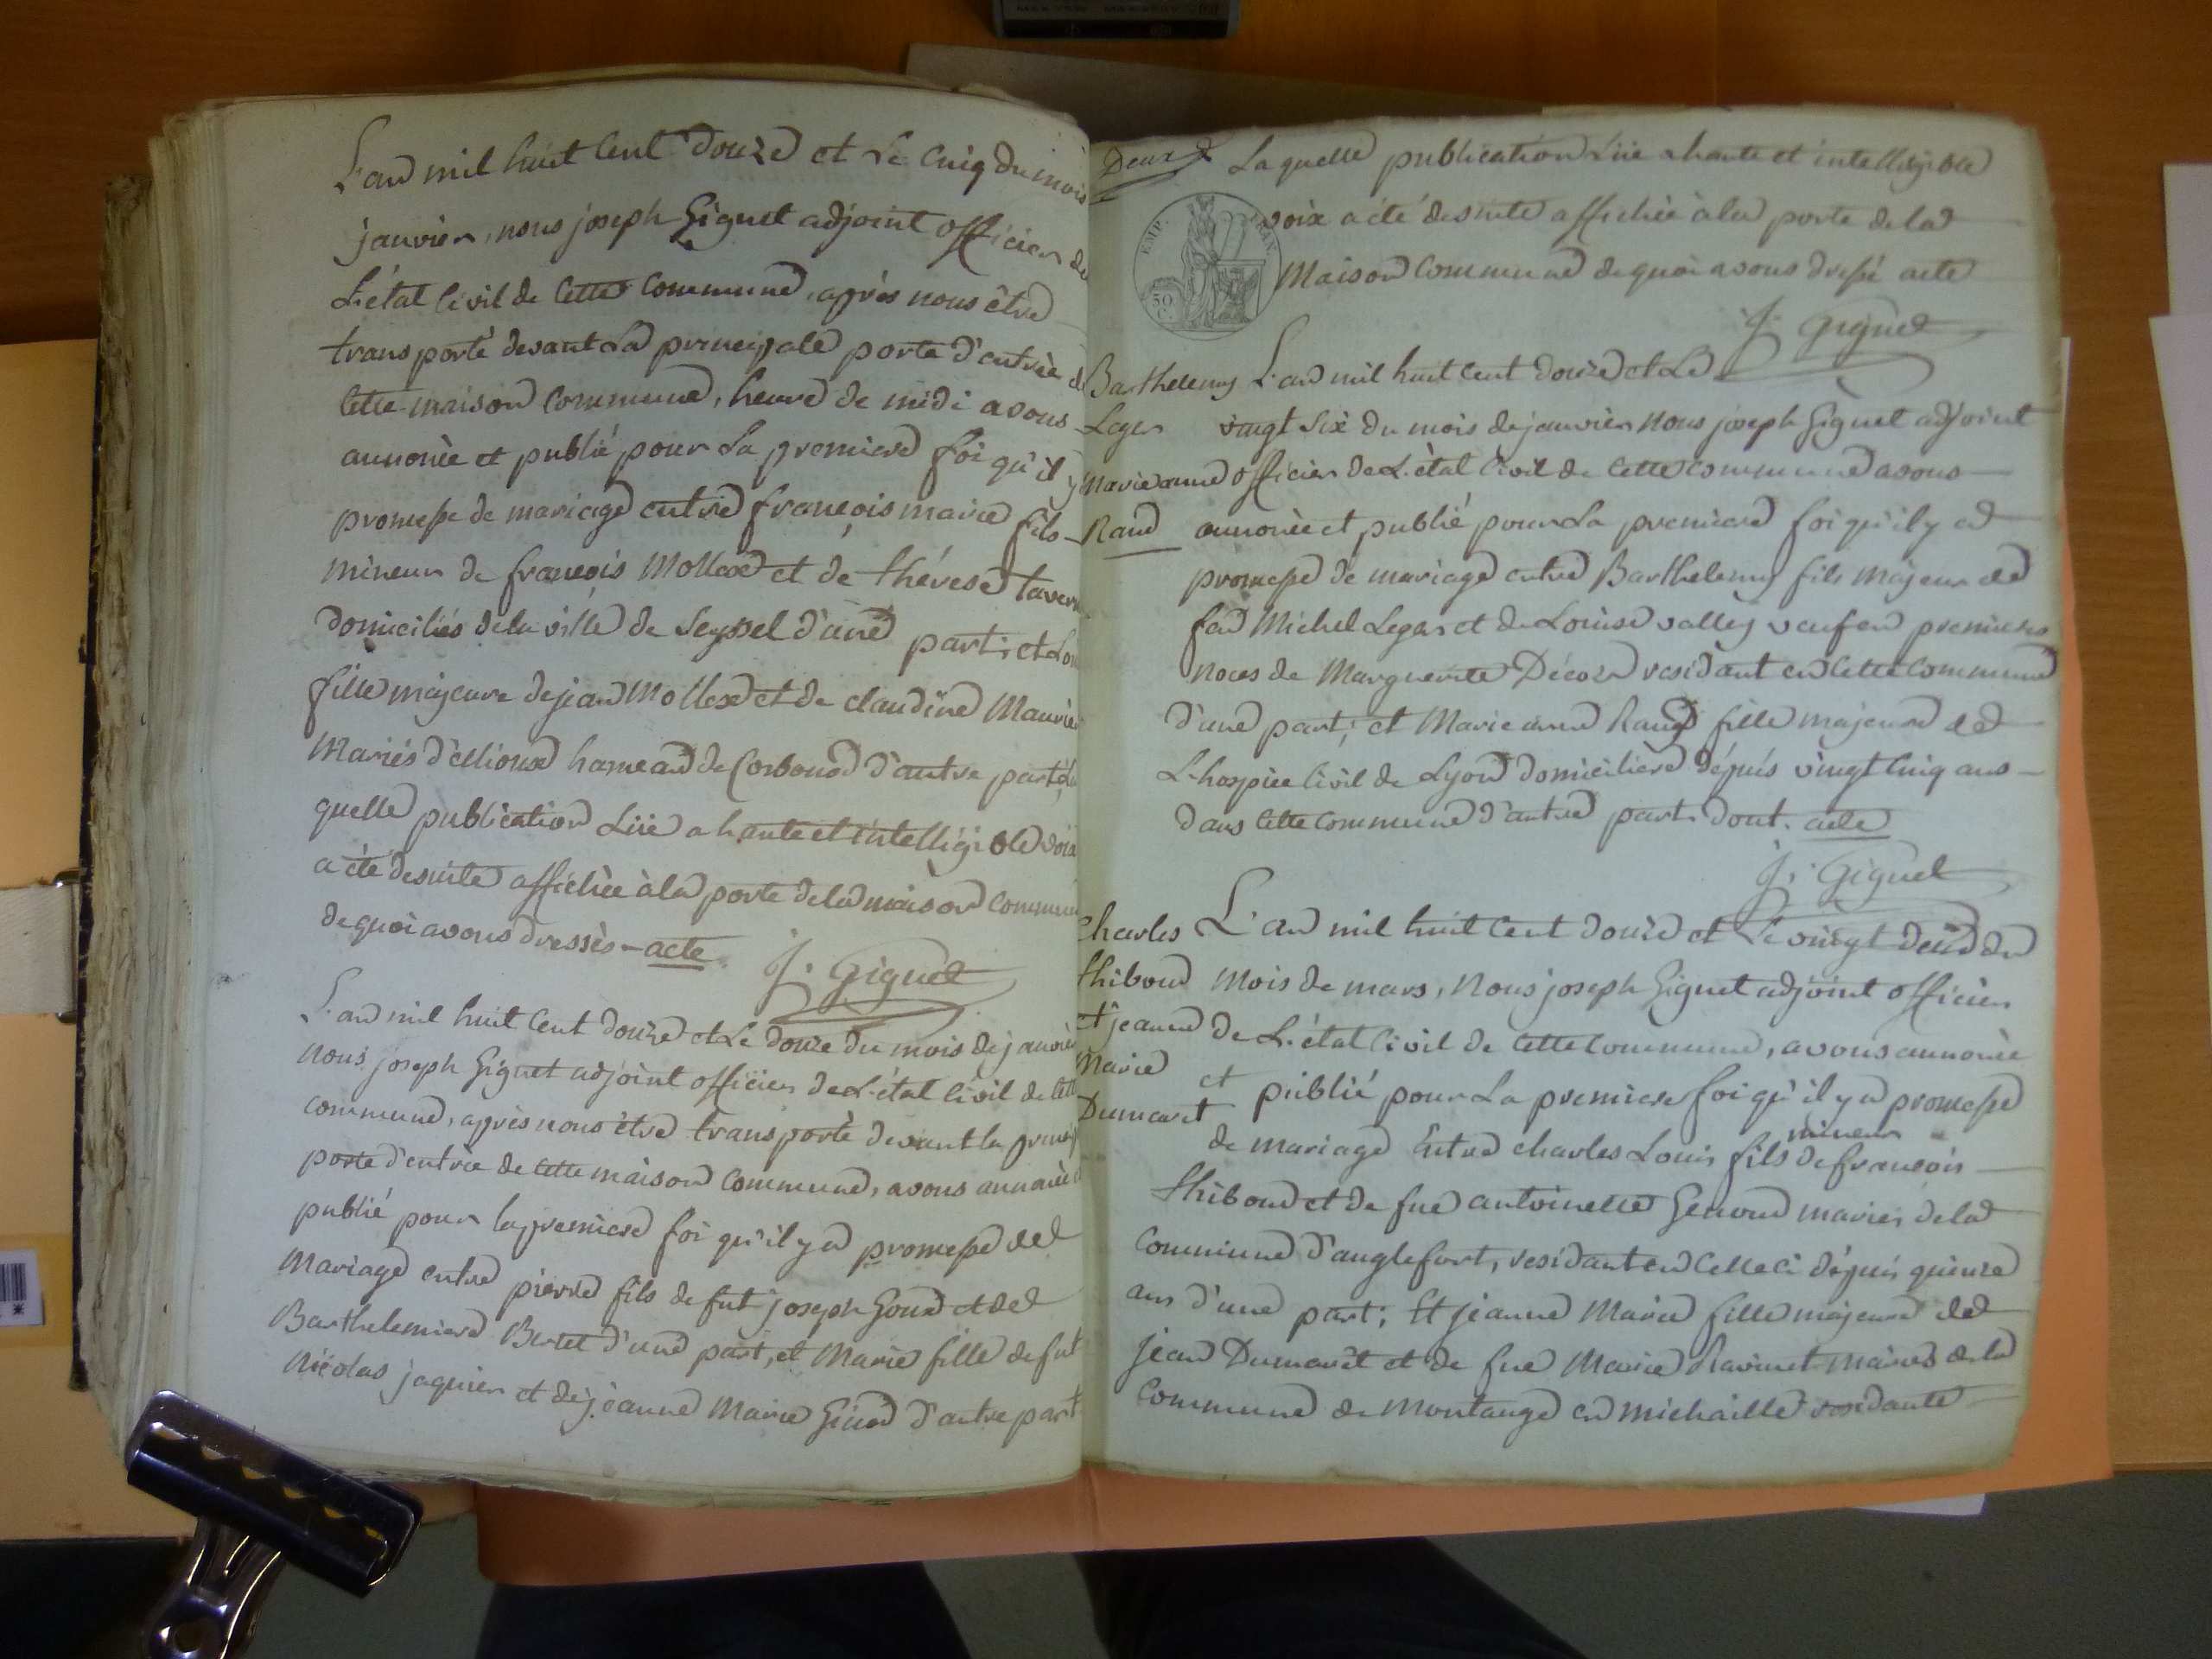 L'an mil huit cent douze et le cinq du mois
janvier, nous joseph Giguet adjoint officier de
L'état Civil de Cette Commune, après nous être
transporté devant la principale porte d'entrée de
Cette maison Commune, heure de midi avons
annonçée et publié pour la premiere foi qu'il y
promesse de mariage entre françois marie fils
mineur de françois Mollex et de thérese taver
domiciliés de la ville de Seyssel d'une part; et Lou
fille majeure de jean Mollex et de claudine Maurie
Mariés d'Etioux hameau de Corbonod d'autre part; La
quelle publication Lüe a haute et intelligible voix
a été desuite affichée à la porte de la maison Commune
de quoi avons dressés acte. J. Giguet
L'an mil huit Cent douze et Le douze du mois de janvier
nous joseph Giguet adjoint officier de L'état Civil de Cette
commune, après nous être transporté devant la princip
porte d'entrée de cette maison Commune, avons annonçée
publié pour la premiere foi qu'il y a promesse de
Mariage entre pierre fils de fut joseph Goux et de
Barthelemiere Bertet d'une part, et Marie fille de fut
Nicolas jaquier et de jeanne Marie d'autre part
Deux La quelle publication Lüe a haute et intelligible
EMP. FRAN
50 C.
voix a été desuite affichée à la porte de la
Maison Commune de quoi avons dressé acte
J. Giguet
Barthelemy L'an mil huit Cent douze et Le
Leger vingt six du mois de janvier nous joseph Giguet adjoint
Marie anne officier de L'état Civil de Cette Commune avons
Rand annonçée et publié pour La premiere foi qu'il y a
promesse de mariage entre Barthelemy fils majeur de
feu Michel Leger et de Louise valley veuf en premieres
Noces de Marguerite Décoz residant en Cette Commune
d'une part; et Marie anne Rand fille majeure de
L'hospice Civil de Lyon domiciliere dépuis vingt Cinq ans
dans Cette Commune d'autre part. dont. acte
J. Giguet
Charles L'an mil huit Cent douze et Le vingt deux du
thiboud mois de mars, Nous joseph Giguet adjoint officier
et jeanne de L'état Civil de Cette Commune, avons annonçée
Marie et publié pour La premiere foi qu'il y a promesse
Dumaret de mariage Entre charles Louis fils mineur de françois
thiboud et de fue antoinette Genoud mariés de la
Commune d'anglefort, residant en Celle ci dépuis quinze
ans d'une part; Et jeanne Marie fille majeure de
jean Dumarêt et de fue Marie Ravinet mariés de la
Commune de Montange en michaille residante